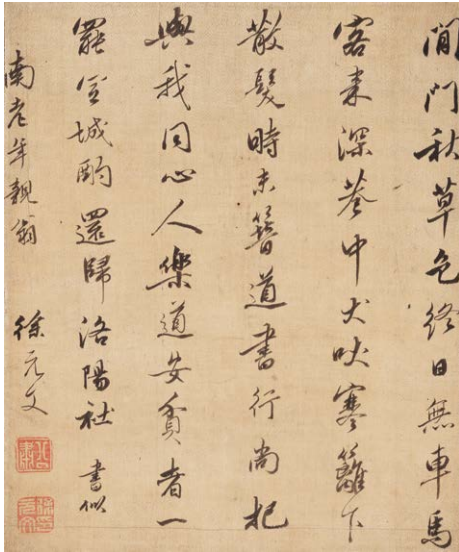 閒門秋草色終日無車馬
客來深巷中犬吠寒籬下
散髮時未簪道書行尚把
與我同心人樂道安貧者一
罷宜城酌還歸洛陽社 書似
南老年親翁 徐元文